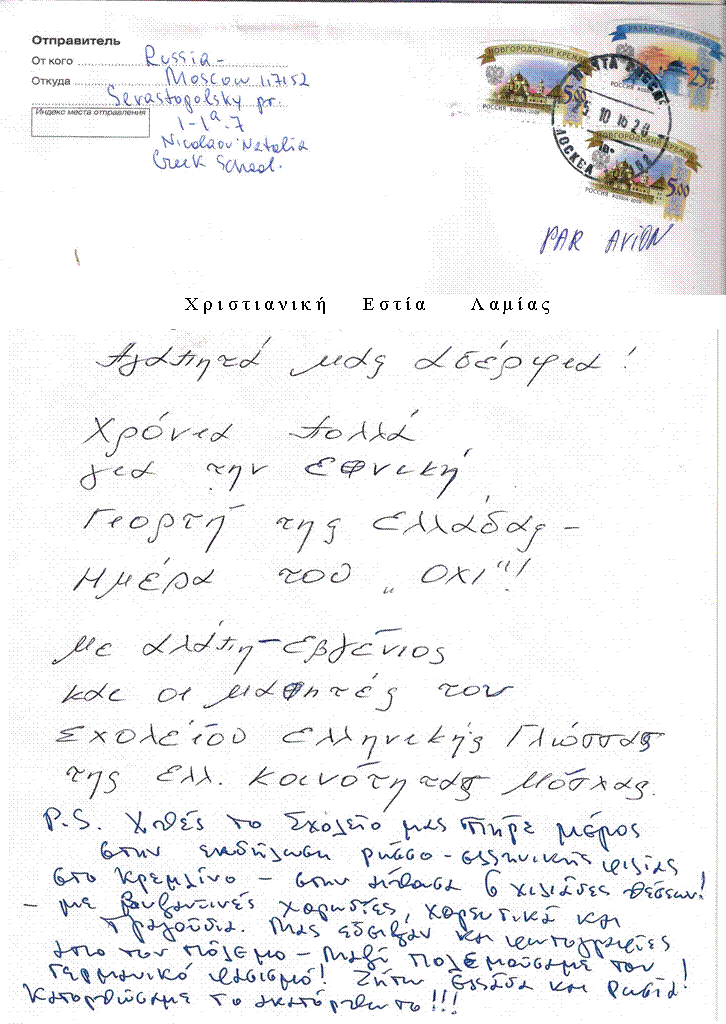 Отправитель
От кого Russia -
Откуда Moscow 117152
Sevastopolsky pr.
Индекс места отправления
1-1ª.7
Nicolaou Natalia
Greek School.
НОВГОРОДСКИЙ КРЕМЛЬ
5.00
РОССИЯ RUSSIA 2009
РЯЗАНСКИЙ КРЕМЛЬ
25
РОССИЯ RUSSIA
ПОЧТА РОССИИ
25 10 16 20
МОСКВА
НОВГОРОДСКИЙ КРЕМЛЬ
5.00
РОССИЯ RUSSIA 2009
PAR AVION
Χριστιανική Εστία Λαμίας
Αγαπητά μας αδέρφια!
Χρόνια πολλά
για την εθνική
Γεορτή της Ελλάδας –
Ημέρα του „ΟΧΙ"!
Με αγάπη – Εβγένιος
και οι μαθητές του
Σχολείου Ελληνικής Γλώσσας
της Ελλ. Κοινότητας Μόσχας.
P.S. Χθές το Σχολείο μας πήρε μέρος
στην εκδήλωση ρώσσο-ελληνικής φιλίας
στο Κρεμλίνο – στην αίθουσα 6 χιλιάδες θέσεων!
– με βυζαντινές χορωδίες, χορευτικά και
τραγούδια. Μας έδειξαν και φωτογραφίες
απο τον πόλεμο – Μαζί πολεμούσαμε τον
Γερμανικό φασισμό! Ζήτω Ελλάδα και Ρωσία!
Κατορθώσαμε το ακατόρθωτο!!!